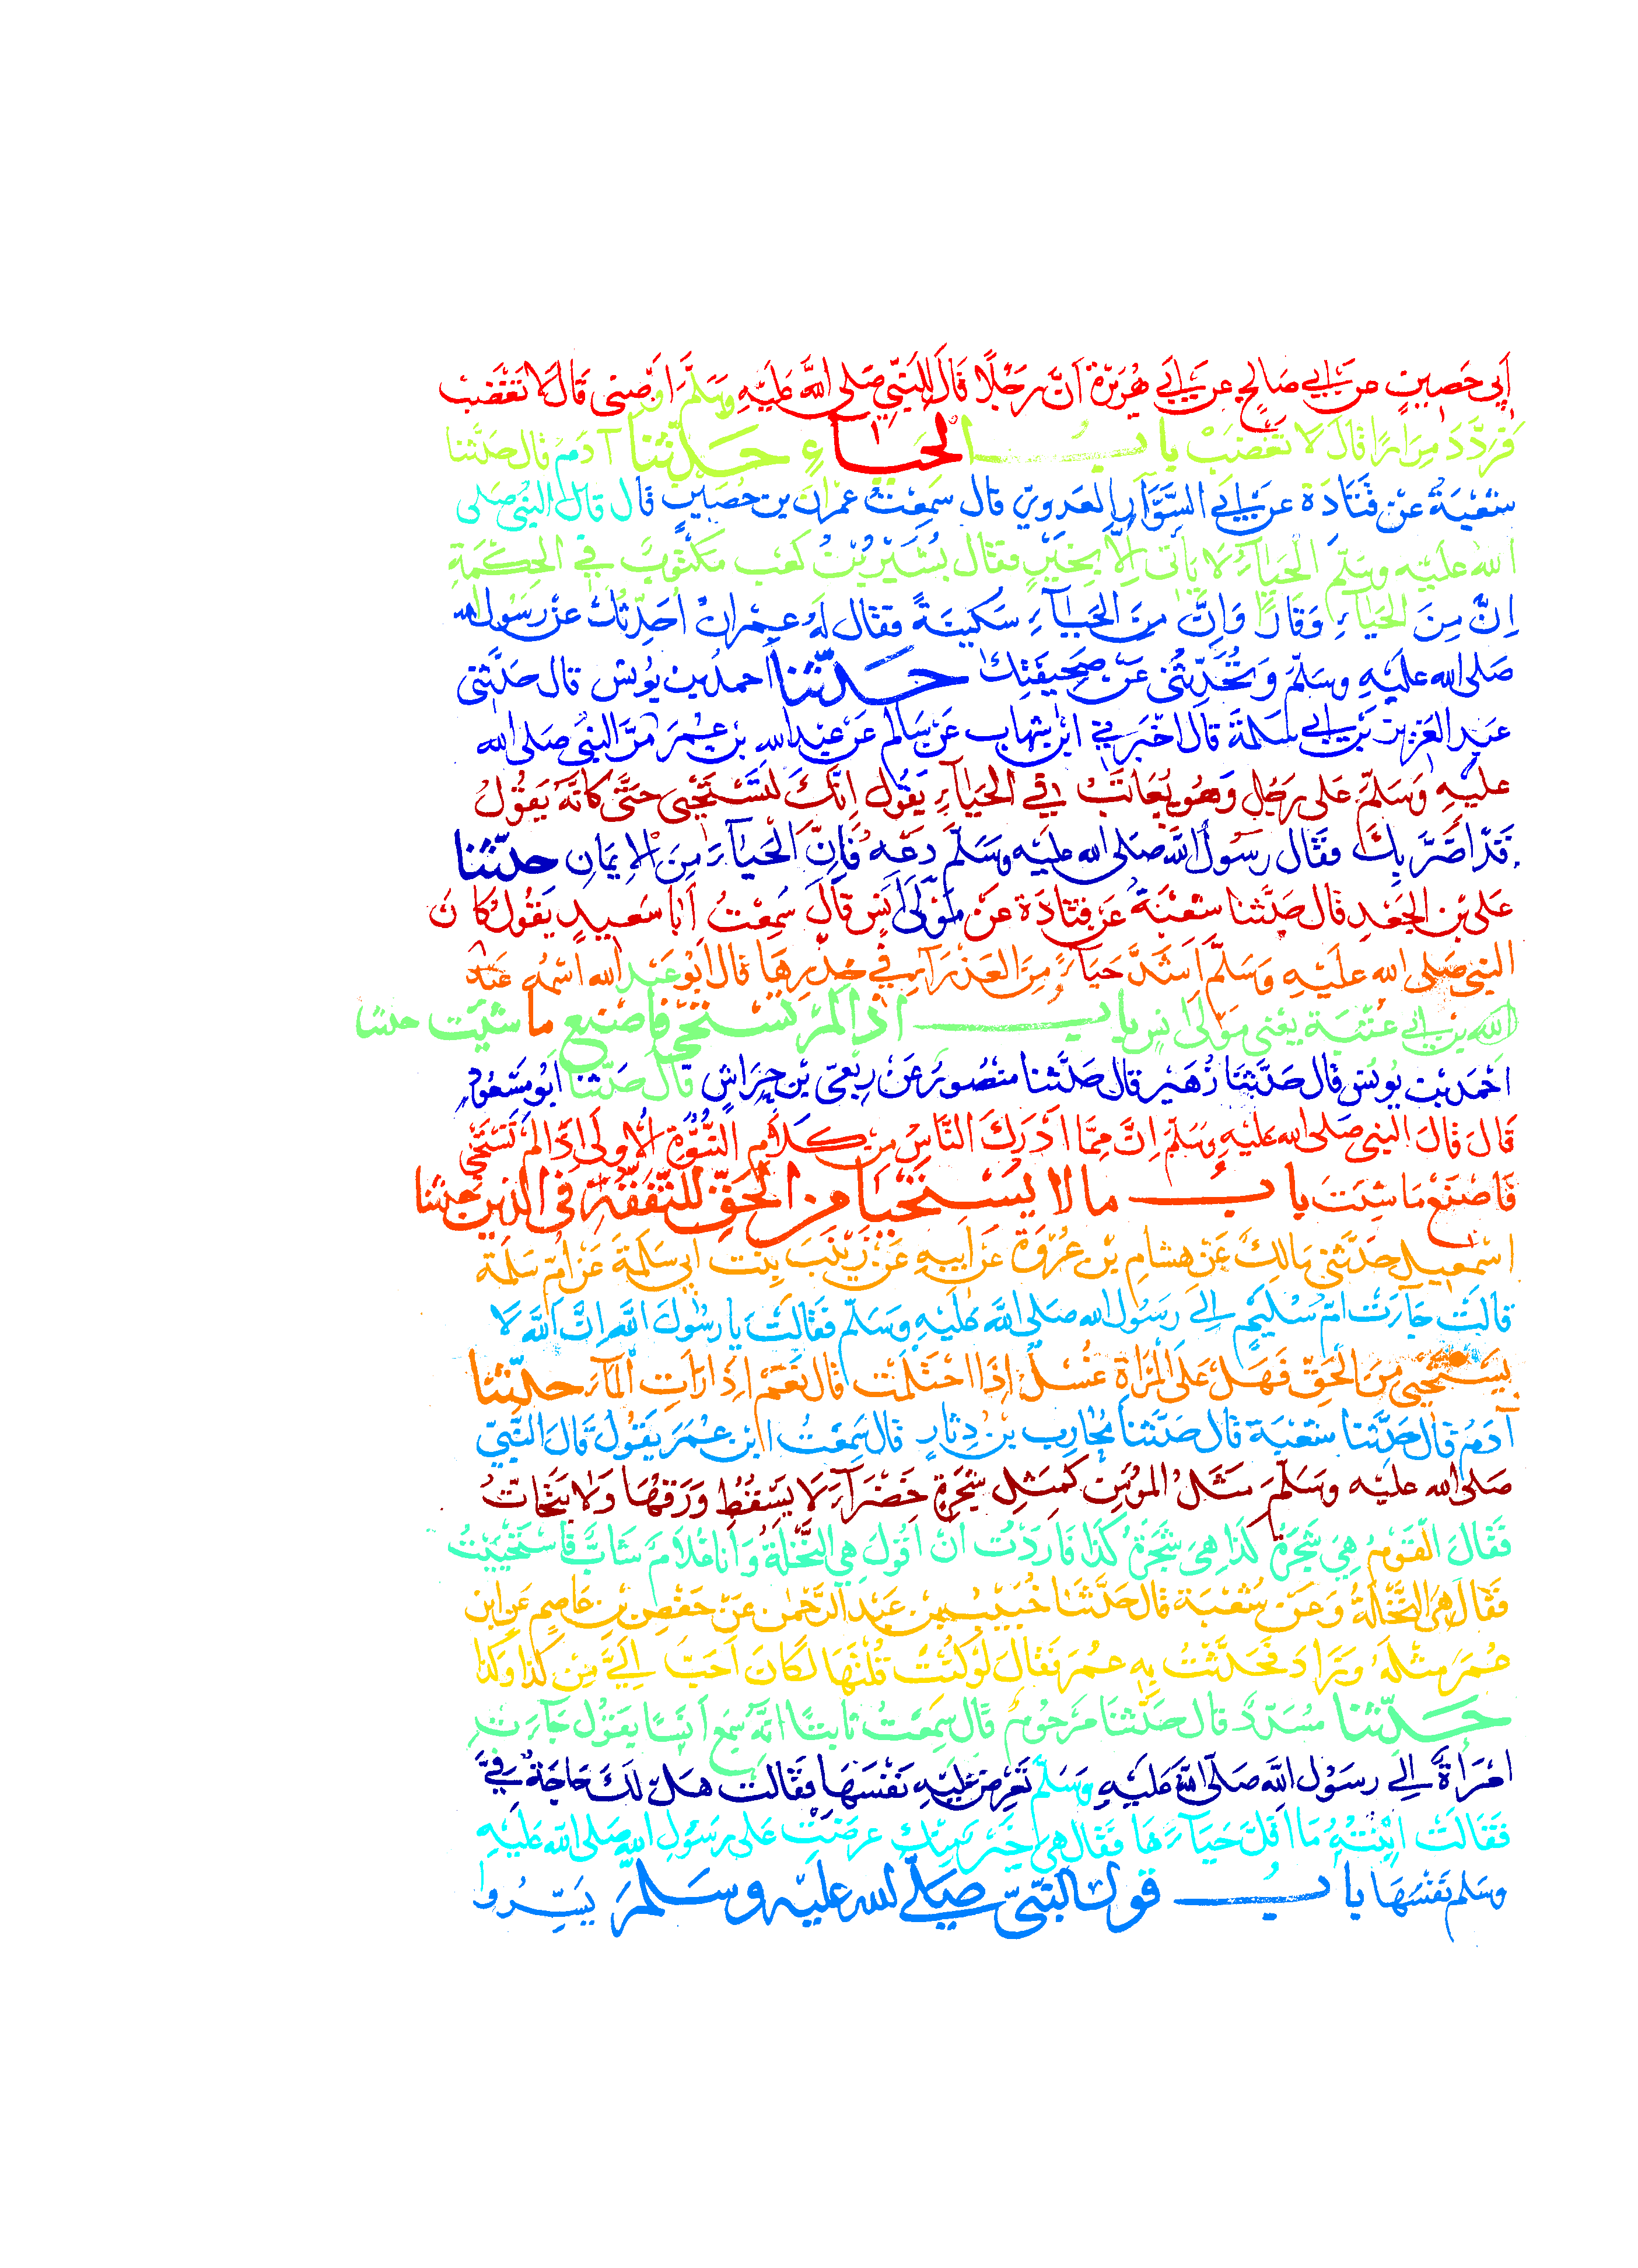 أَبِي حَصِينٍ عن أبي صَالِحٍ عن أبي هُرَيْرَةَ أَنَّ رَجُلًا قَالَ لِلنَّبِيِّ صَلى اللهُ عَلَيْهِ وَسَلَّمَ اَوْصِنِي قَالَ لَا تَغْضَبْ
فَرَدَّدَ مِرَارًا قَالَ لَا تَغْضَبْ بابُ الحَيَاءِ حَدَّثَنَا آدَمُ قال حَدَّثَنا
شُعْبَةُ عَنْ قَتَادَةَ عن أبي السَّوَّارِ العَدَوِيِّ قال سَمِعْتُ عِمْرَانَ بن حُصَيْنٍ قال قال النبيُّ صَلى
الله عليه وسَلّمَ الحَيَاءُ لا يَأتي إِلَّا بِخَيْرٍ فقال بُشَيْرُ بْنُ كَعْبٍ مَكْتُوبٌ في الحِكْمَةِ
اِنَّ مِنَ الحَيَاءِ وَقَارًا وَاِنَّ مِنَ الحَيَاءِ سَكِينَةً فقال لَهُ عِمْرانُ اُحَدِّثُكَ عن رَسُولِ الله
صَلى الله عليْهِ وسَلّمَ وَتُحَدِّثُني عَنْ صَحِيفَتِكَ حَدَّثَنا احمدُ بن يُونُسَ قال حَدَّثني
عَبْدُ العَزِيزِ بْنُ أبي سَلَمَةَ قال اَخْبَرَنِي ابْنُ شِهَابٍ عَنْ سَالِمٍ عَنْ عَبْدِ اللهِ بْنِ عُمَرَ مَرَّ النبيُّ صَلى الله
عليْهِ وَسَلّمَ عَلى رَجُلٍ وَهُوَ يُعَاتَبُ في الحَيَاءِ يَقُولُ اِنَّكَ لَتَسْتَحْيِي حَتَّى كَانَّهُ يَقُولُ
قَدْ اَضَرَّ بِكَ فقَال رَسُولُ اللهِ صَلى الله عليه وَسَلّمَ دَعْهُ فَإِنَّ الحَيَاءَ مِنَ الإِيمَانِ حدّثنا
عَلي بْنُ الجَعْدِ قال حَدَّثنا شُعْبَةُ عَنْ قَتَادَةَ عَنْ مَوْلَى اَنَسٍ قَالَ سَمِعْتُ أَبَا سَعِيدٍ يَقُولُ كَانَ
النبي صَلى الله عليْهِ وَسَلّمَ اَشَدَّ حَيَاءً مِنَ العَذْرَاءِ فِي خِدْرِهَا قال اَبُو عَبْد الله اسْمُهُ عَبْدُ
الله بن أبي عُتْبَةَ يعني مَوْلَى اَنَسٍ بابُ اذا لَمْ تَسْتَحِي فاصْنَع ما شِيْتَ حدثنا
اَحْمَدُ بْنُ يُونُسَ قال حَدَّثَنَا زُهَيْر قال حَدَّثنا مَنْصُورٌ عَنْ رِبْعِيّ بْنِ حِرَاشٍ قَالَ حَدَّثنا أَبُو مَسْعُودٍ
قَالَ قَالَ النبي صَلى الله عليْهِ وسَلّمَ اِنَّ مِمَّا اَدْرَكَ النَّاسُ مِنْ كَلَامِ النُّبُوَّةِ الأُولَى إِذَا لَمْ تَسْتَحْيِ
فَاصْنَعْ مَا شِيْتَ بابُ ما لا يُسْتَحْيَا مِنَ الْحَقِّ لِلتَّفَقُّهِ في الدِّينِ حدثنا
اِسْمعِيلُ حَدَّثَنِي مَالِكٌ عَنْ هِشَامِ بْنِ عُرْوَةَ عَنْ اَبِيهِ عَنْ زَيْنَبَ بِنْتِ اَبِي سَلَمَةَ عَنْ اُمّ سَلَمَةَ
قالَتْ جَاءَتْ أُمُّ سُلَيْمٍ إِلى رَسُولِ الله صَلى اللهُ عَلَيْهِ وَسَلّمَ فَقَالَتْ يا رَسُولَ اللهِ إِنَّ اللهَ لَا
يَسْتَحْيِي مِنَ الْحَقِّ فَهَلْ عَلَى الْمَرْأَةِ غُسْلٌ إِذَا احْتَلَمَتْ قال نَعَمْ اِذَا رَأَتِ الْمَاءَ حدّثنا
آدَمُ قَالَ حَدَّثَنا شُعْبَة قال حَدَّثَنا مُحَارِبُ بْنُ دِثَارٍ قال سَمِعْتُ ابْن عُمَرَ يَقُولُ قَالَ النَّبِيُّ
صَلى الله عليه وسَلَّمَ مَثَلُ المُؤْمِنِ كَمَثَلِ شَجَرَةٍ خَضْرَاءَ لا يَسْقُطُ وَرَقُهَا وَلا يَتَحَاتُّ
فَقَالَ الْقَوْمُ هِيَ شَجَرَةُ كَذَا هِيَ شَجَرَةُ كَذَا فَارَدْتُ اَنْ اَقُولَ هِيَ النَّخْلَةُ وَاَنَا غُلَامٌ شَابٌّ فَاسْتَحْيَيْتُ
فَقَالَ هِيَ النَّخْلَةُ وَعَنْ شُعْبَةَ قال حَدَّثَنَا خُبَيْبُ بْن عَبْدِ الرَّحْمٰنِ عَنْ حَفْصِ بْنِ عَاصِمٍ عَنِ ابْنِ
عُمَرَ مِثْلَهُ وَزَادَ فَحَدَّثْتُ بِهِ عُمَرَ فَقَالَ لَوْ كُنْتَ قُلْتَهَا لَكَانَ اَحَبَّ إِلَيَّ مِنْ كَذَا وَكَذَا
حَدّثنا مُسَدَّدٌ قال حَدَّثنَا مَرْحُومٌ قَالَ سَمِعْتُ ثَابِتًا اَنَّهُ سَمِعَ اَنَسًا يَقُولُ جَاءَتِ
امْرَأَةٌ إِلَى رَسُولِ اللهِ صَلّى اللهُ عَلَيْهِ وَسَلّمَ تَعْرِضُ عَلَيْهِ نَفْسَهَا فَقَالَتْ هَلْ لَكَ حَاجَةٌ فِيَّ
فَقَالَتْ ابْنَتُهُ مَا اَقَلَّ حَيَاءَهَا فَقَال هِيَ خَيْرٌ مِنْكِ عَرَضَتْ عَلى رَسُولِ اللهِ صَلى الله عَلَيْهِ
وسَلم نَفْسَهَا بابُ قول النبيّ صَلَّى الله عليْه وسَلّمَ يَسِّرُوا